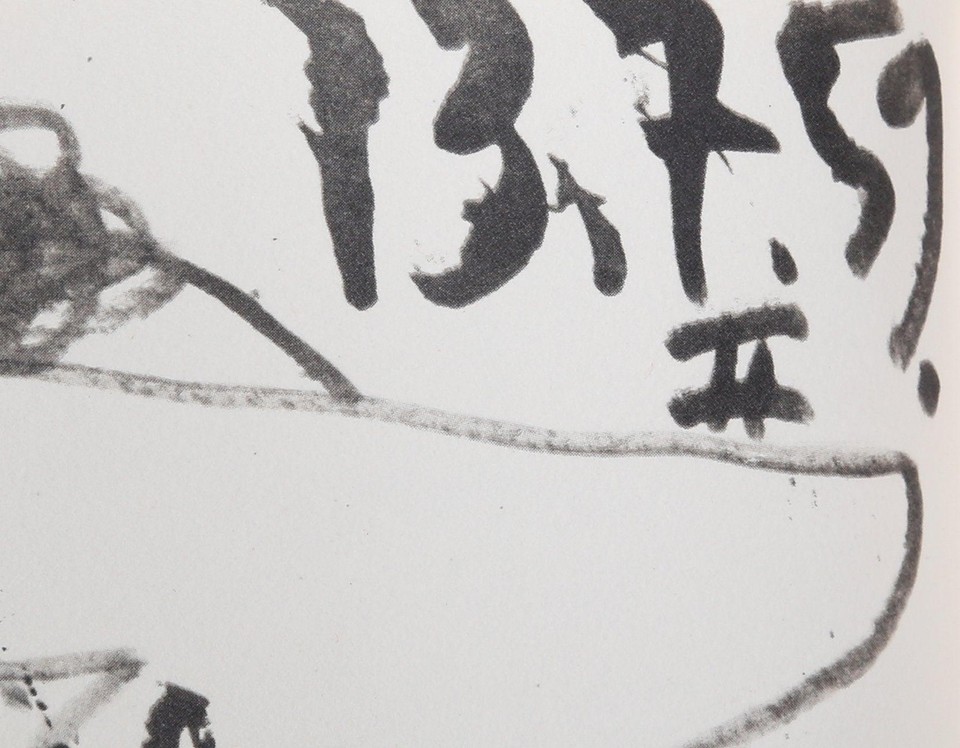 13.7.59.
II